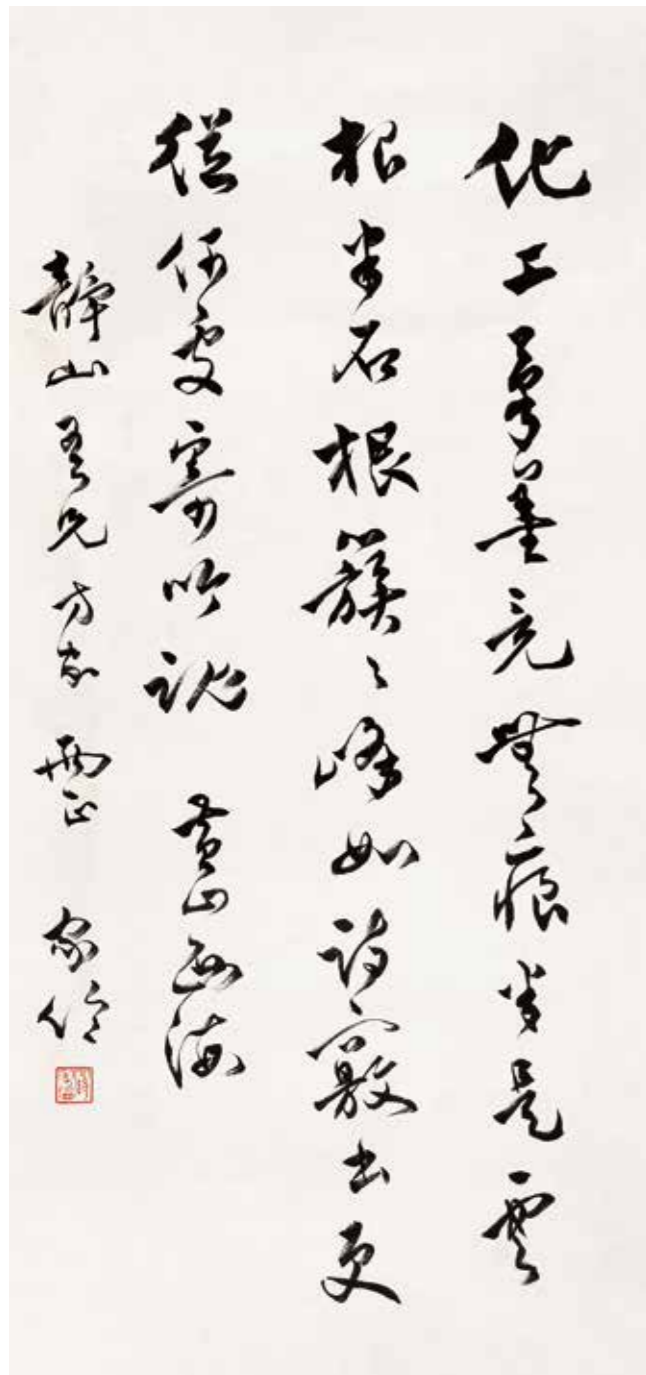 化工筆墨竟無痕半是雲
根半石根簇々峰如詩竅出更
從何處寄吟魂 黃山西海
靜山吾兄方家兩正 家倫